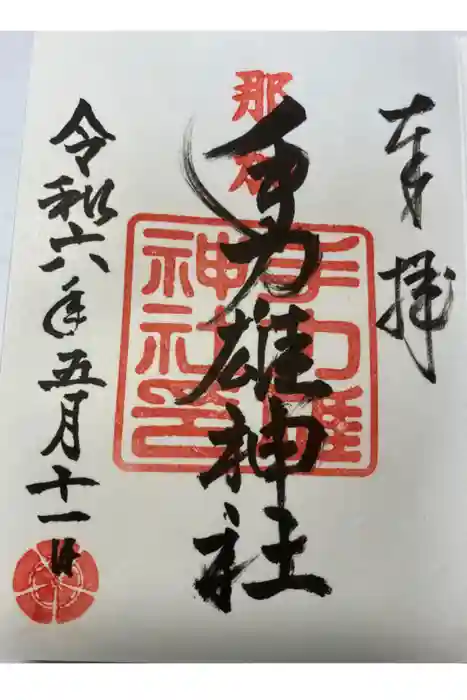 奉拝
那加
手力雄神社
手力雄
神社之印
令和六年五月十一日